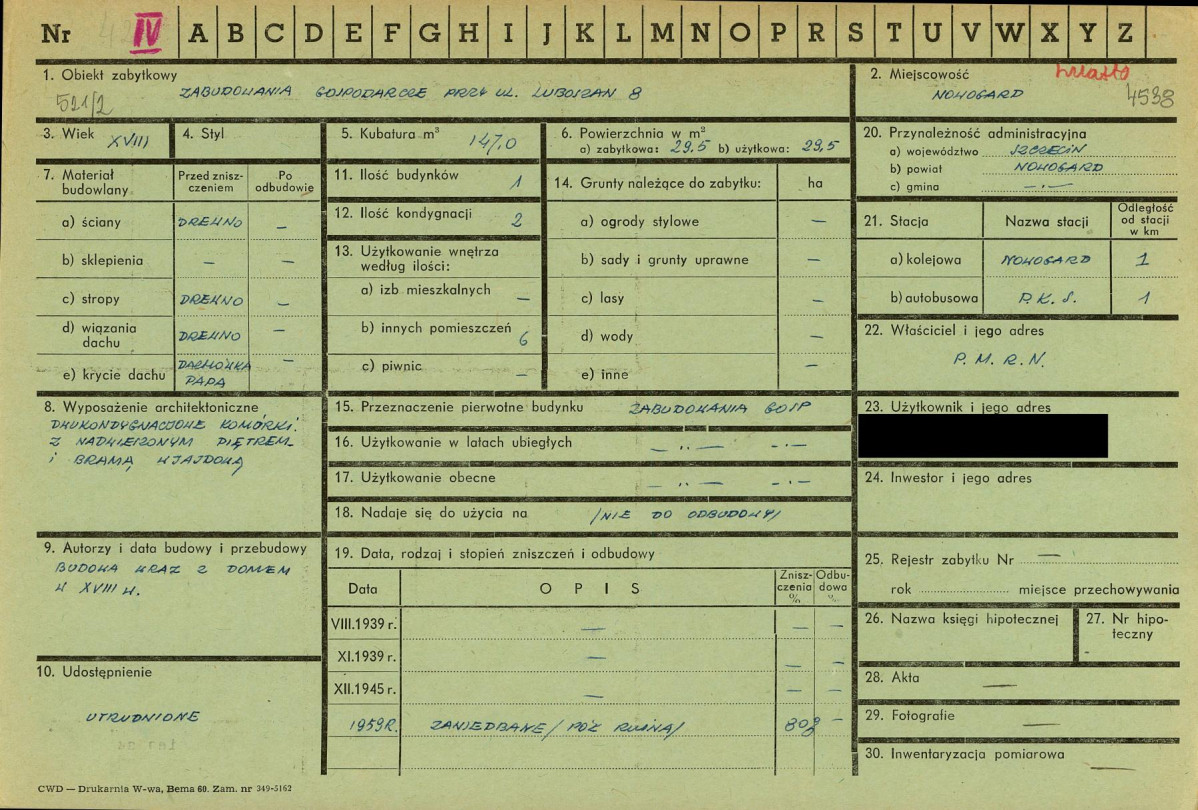 Nr IV A B C D E F G H I J K L M N O P R S T U V W X Y Z
1. Obiekt zabytkowy
521/2
ZABUDOWANIA GOSPODARCZE PRZY UL. LUBOSZAN 8
2. Miejscowość
miasto
NOWOGARD
4538
3. Wiek XVIII
4. Styl
5. Kubatura m³ 147.0
6. Powierzchnia w m²
a) zabytkowa: 29.5 b) użytkowa: 29,5
20. Przynależność administracyjna
a) województwo SZCZECIN
b) powiat NOWOGARD
c) gmina —·—
7. Materiał budowlany
Przed zniszczeniem
Po odbudowie
a) ściany DREWNO —
b) sklepienia — —
c) stropy DREWNO —
d) wiązania dachu DREWNO —
e) krycie dachu DACHÓWKA PAPA —
11. Ilość budynków 1
12. Ilość kondygnacji 2
13. Użytkowanie wnętrza
według ilości:
a) izb mieszkalnych —
b) innych pomieszczeń 6
c) piwnic —
14. Grunty należące do zabytku: ha
a) ogrody stylowe —
b) sady i grunty uprawne —
c) lasy —
d) wody —
e) inne —
21. Stacja Nazwa stacji Odległość od stacji w km
a) kolejowa NOWOGARD 1
b) autobusowa P.K.S. 1
22. Właściciel i jego adres
P.M.R.N.
8. Wyposażenie architektoniczne
DWUKONDYGNACJOWE KOMÓRKI.
Z NADWIESZONYM PIĘTREM
I BRAMĄ WJAZDOWĄ
15. Przeznaczenie pierwotne budynku ZABUDOWANIA GOSP
16. Użytkowanie w latach ubiegłych — „— —·—
17. Użytkowanie obecne — „— —·—
18. Nadaje się do użycia na /NIE DO ODBUDOWY/
23. Użytkownik i jego adres
24. Inwestor i jego adres
9. Autorzy i data budowy i przebudowy
BUDOWA WRAZ Z DOMEM
W XVIII W.
19. Data, rodzaj i stopień zniszczeń i odbudowy
Data OPIS Zniszczenia % Odbudowa %
VIII.1939 r. — — —
XI.1939 r. — — —
XII.1945 r. — — —
1959R. ZANIEDBANE /PÓŁ RUINA/ 80% —
25. Rejestr zabytku Nr —
rok miejsce przechowywania
26. Nazwa księgi hipotecznej
27. Nr hipoteczny
10. Udostępnienie
UTRUDNIONE
28. Akta —
29. Fotografie —
30. Inwentaryzacja pomiarowa —
CWD — Drukarnia W-wa, Bema 60. Zam. nr 349-5162